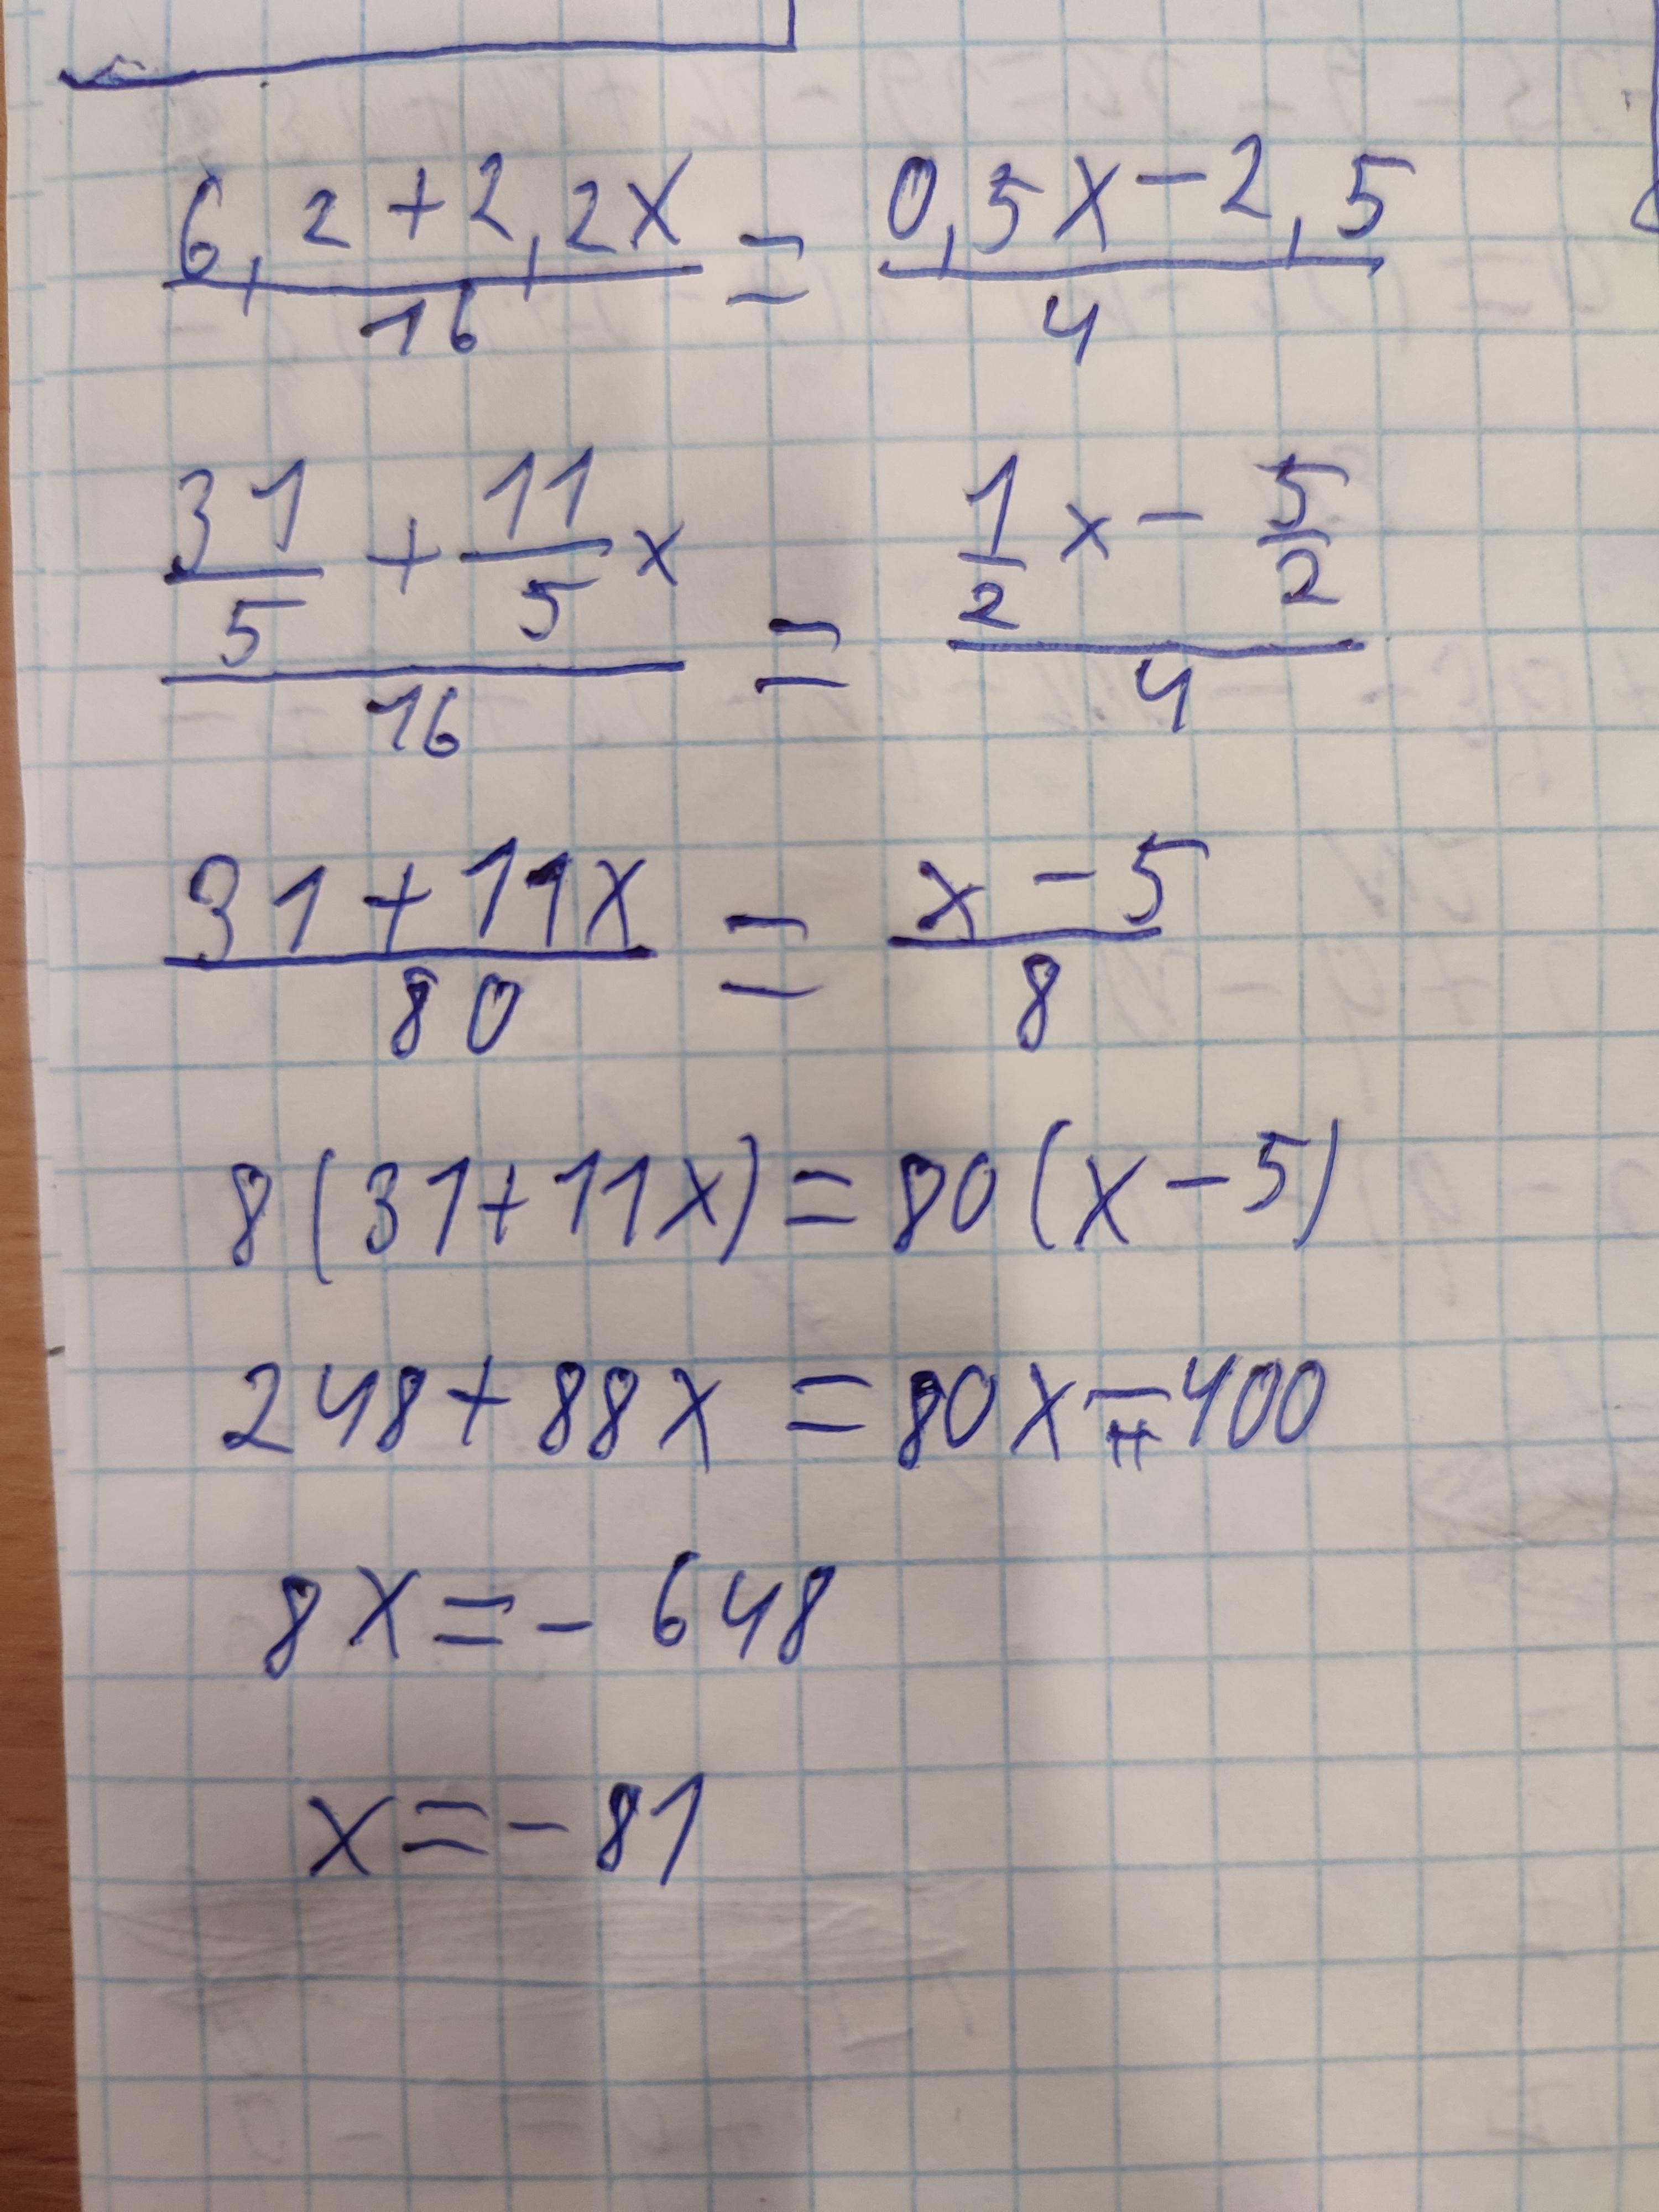 6,2+2,2x/16 = 0,5x-2,5/4
31/5 + 11/5 x/16 = 1/2 x - 5/2/4
31+11x/80 = x-5/8
8(31+11x)=80(x-5)
248+88x=80x-400
8x=-648
x=-81